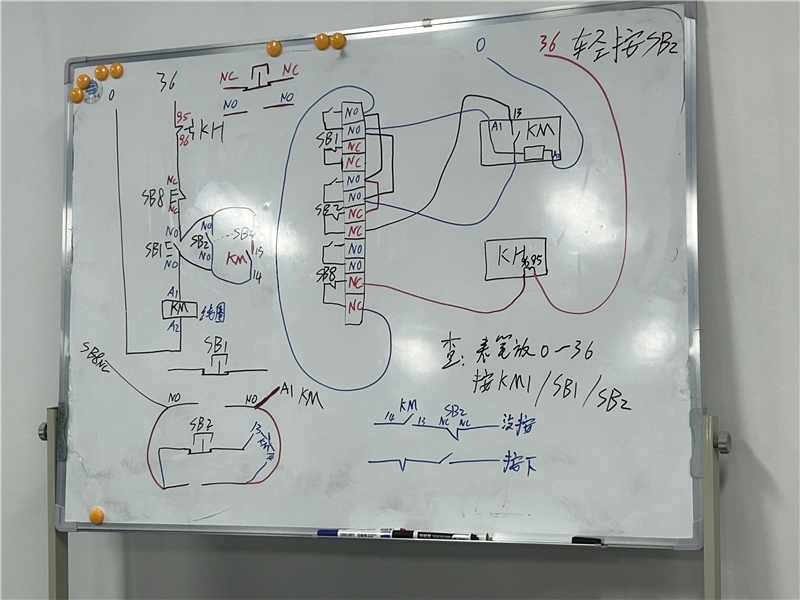 0
36
NC
NC
NO
NO
0
36 轻按SB2
95
96
KH
NC
SB8
NC
NO
SB1
NO
NO
SB2
NO
KM
13
14
A1
KM
线圈
A2
NO
SB1
NO
NC
NC
NO
SB2
NO
NC
NC
NO
SB8
NO
NC
NC
A1
13
KM
KH
96 95
SB8NC
SB1
NO
NO
A1 KM
SB2
13
查: 表笔放0-36
按KM1/SB1/SB2
KM
14
13
SB2
NC
NC
没按
按下